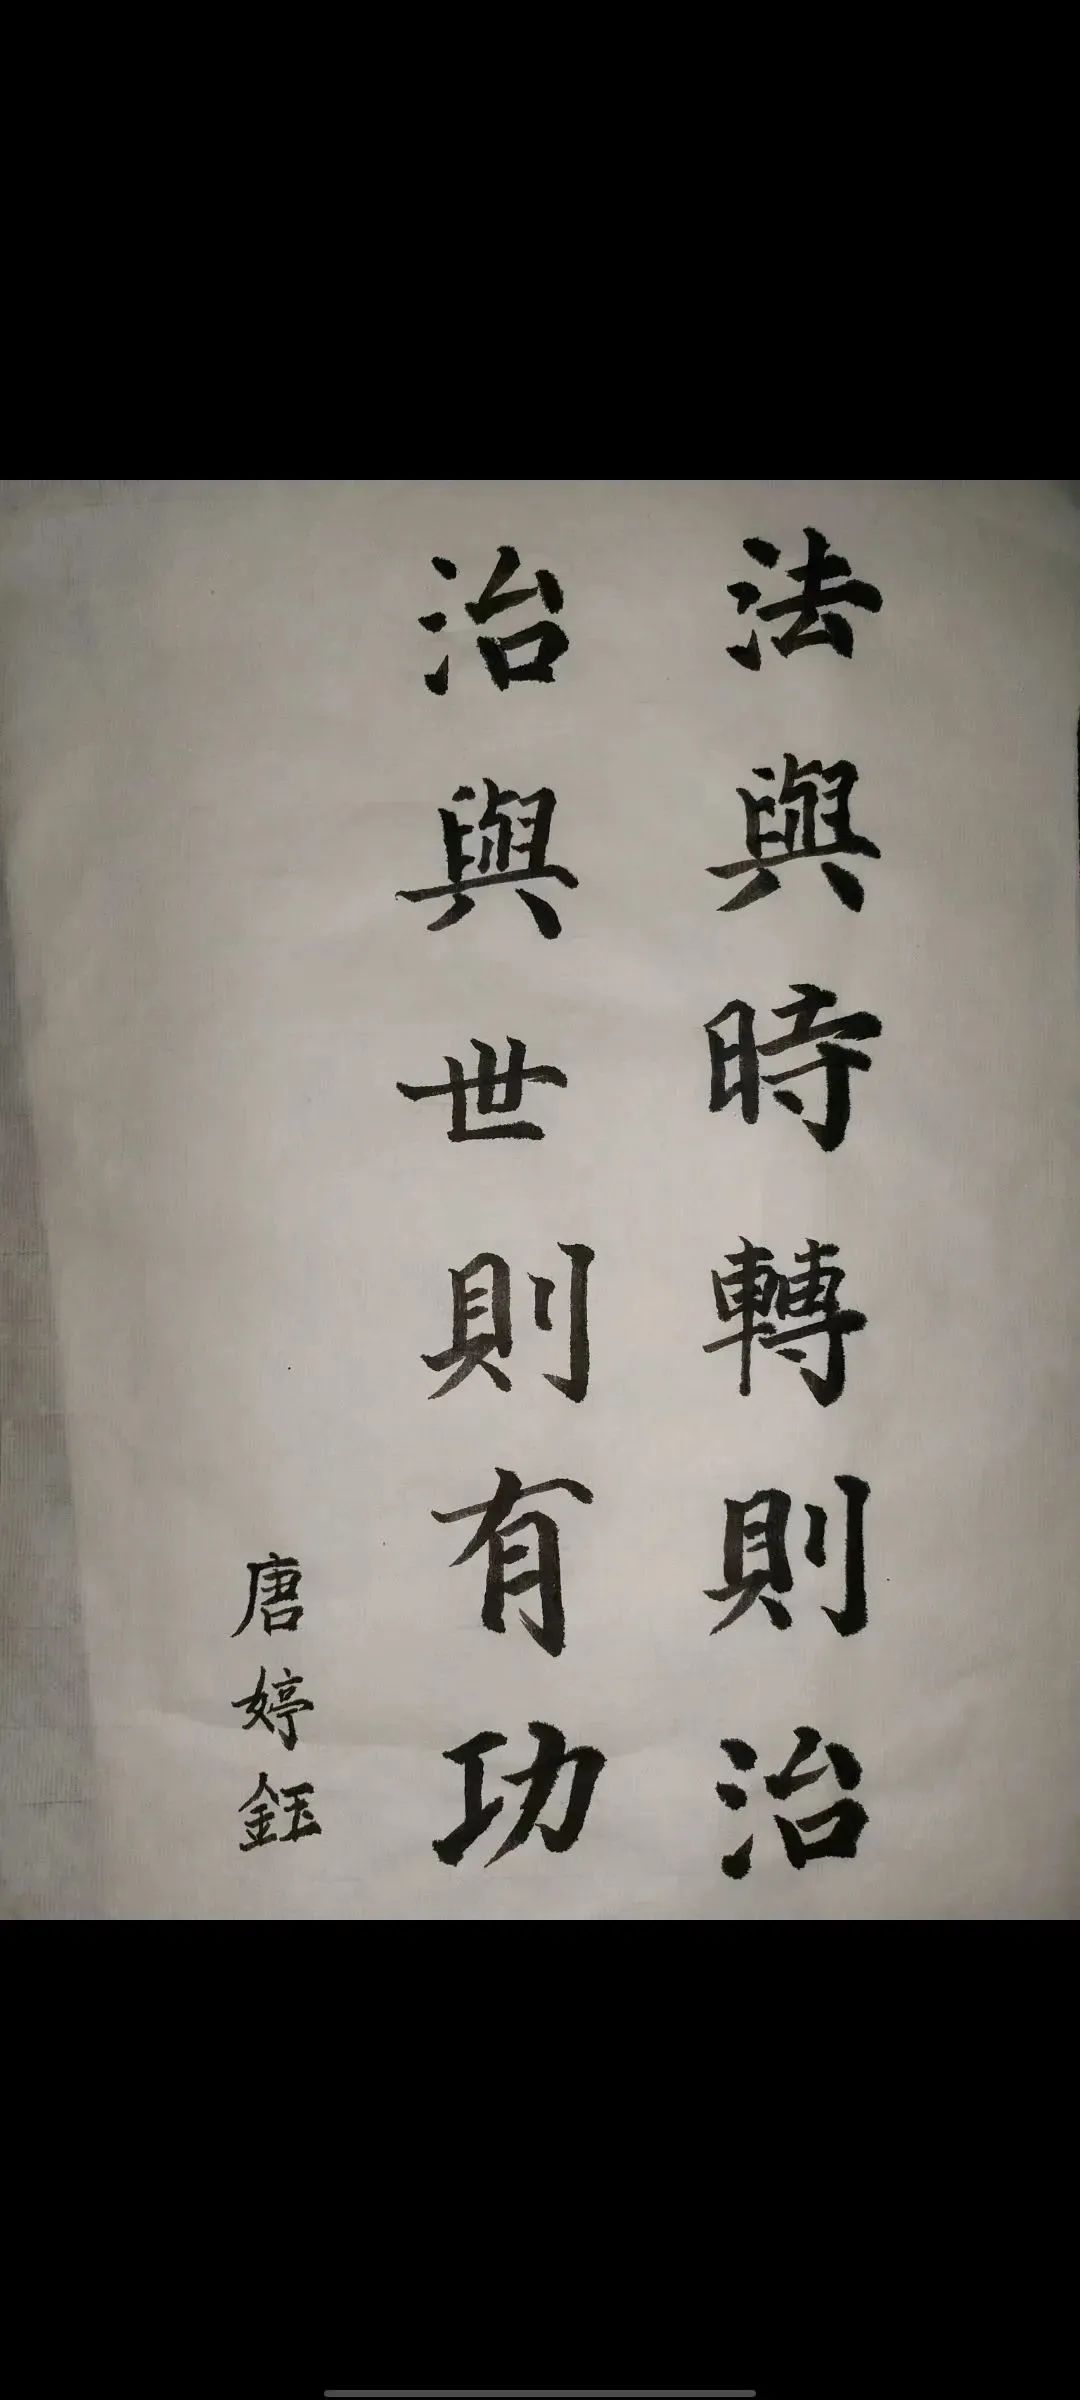 法與時轉則治
治與世則有功
唐婷鈺